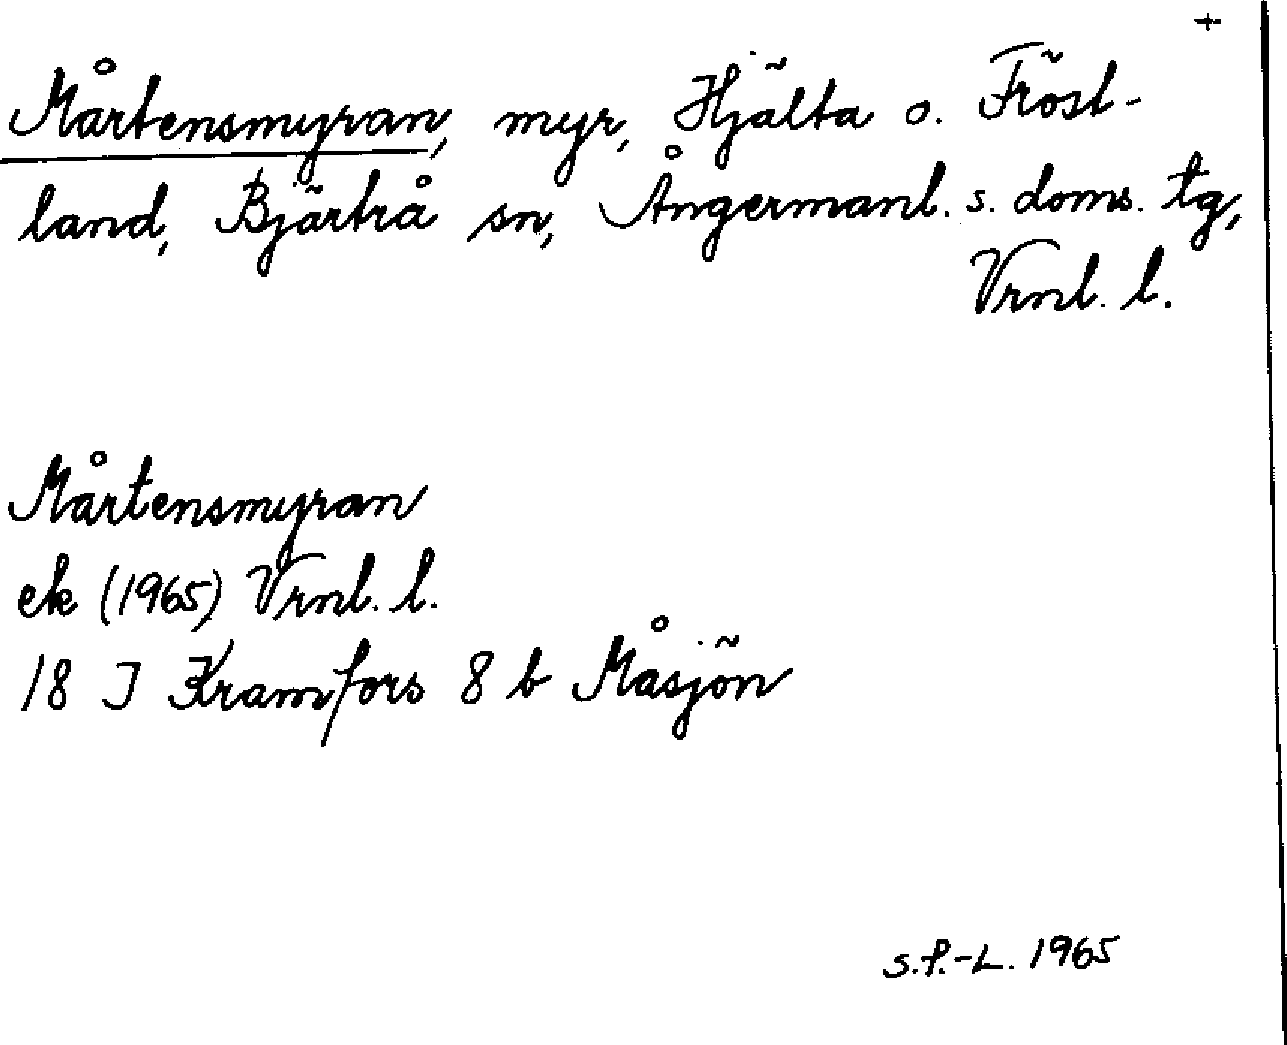 +
Mårtensmyran, myr, Hjälta o. Fröst-
land, Bjärtrå sn, Ångermanl. s. doms. tg,
Vrnl. l.
Mårtensmyran
ek (1965) Vrnl. l.
18 J Kramfors 8 b Måsjön
S.P.-L. 1965